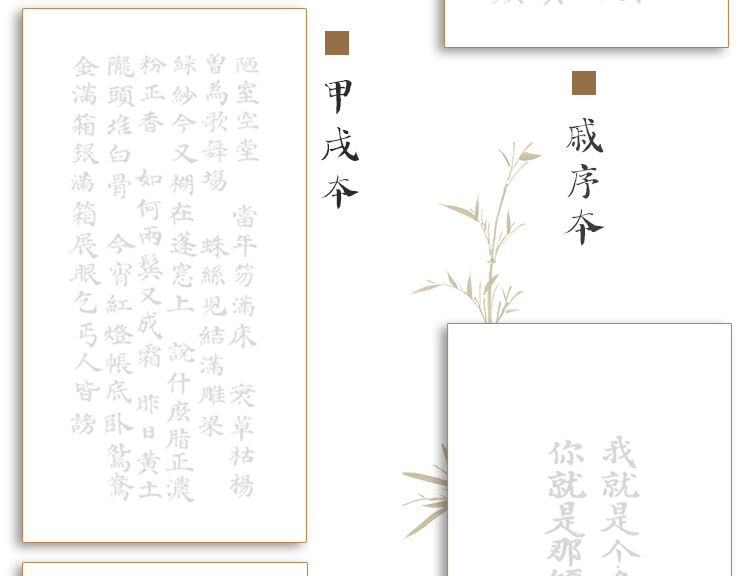 甲戌本
陋室空堂 當年笏滿床 衰草枯楊
曾為歌舞場 蛛絲兒結滿雕梁
綠紗今又糊在蓬窓上 說什麽脂正濃
粉正香 如何兩鬢又成霜 昨日黃土
隴頭堆白骨 今宵紅燈帳底臥鴛鴦
金滿箱銀滿箱展眼乞丐人皆謗
戚序本
我就是个
你就是那